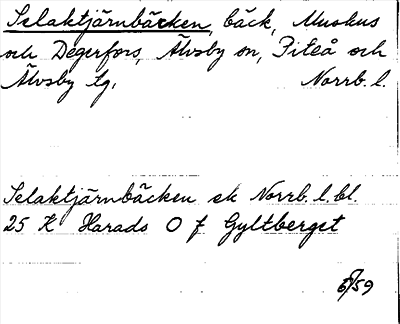 Selaktjärnbäcken, bäck, Muskus
och Degerfors, Älvsby sn, Piteå och
Älvsby tg, Norrb. l.
Selaktjärnbäcken ek Norrb. l. bl.
25 K Harads O f Gyltberget
5/59